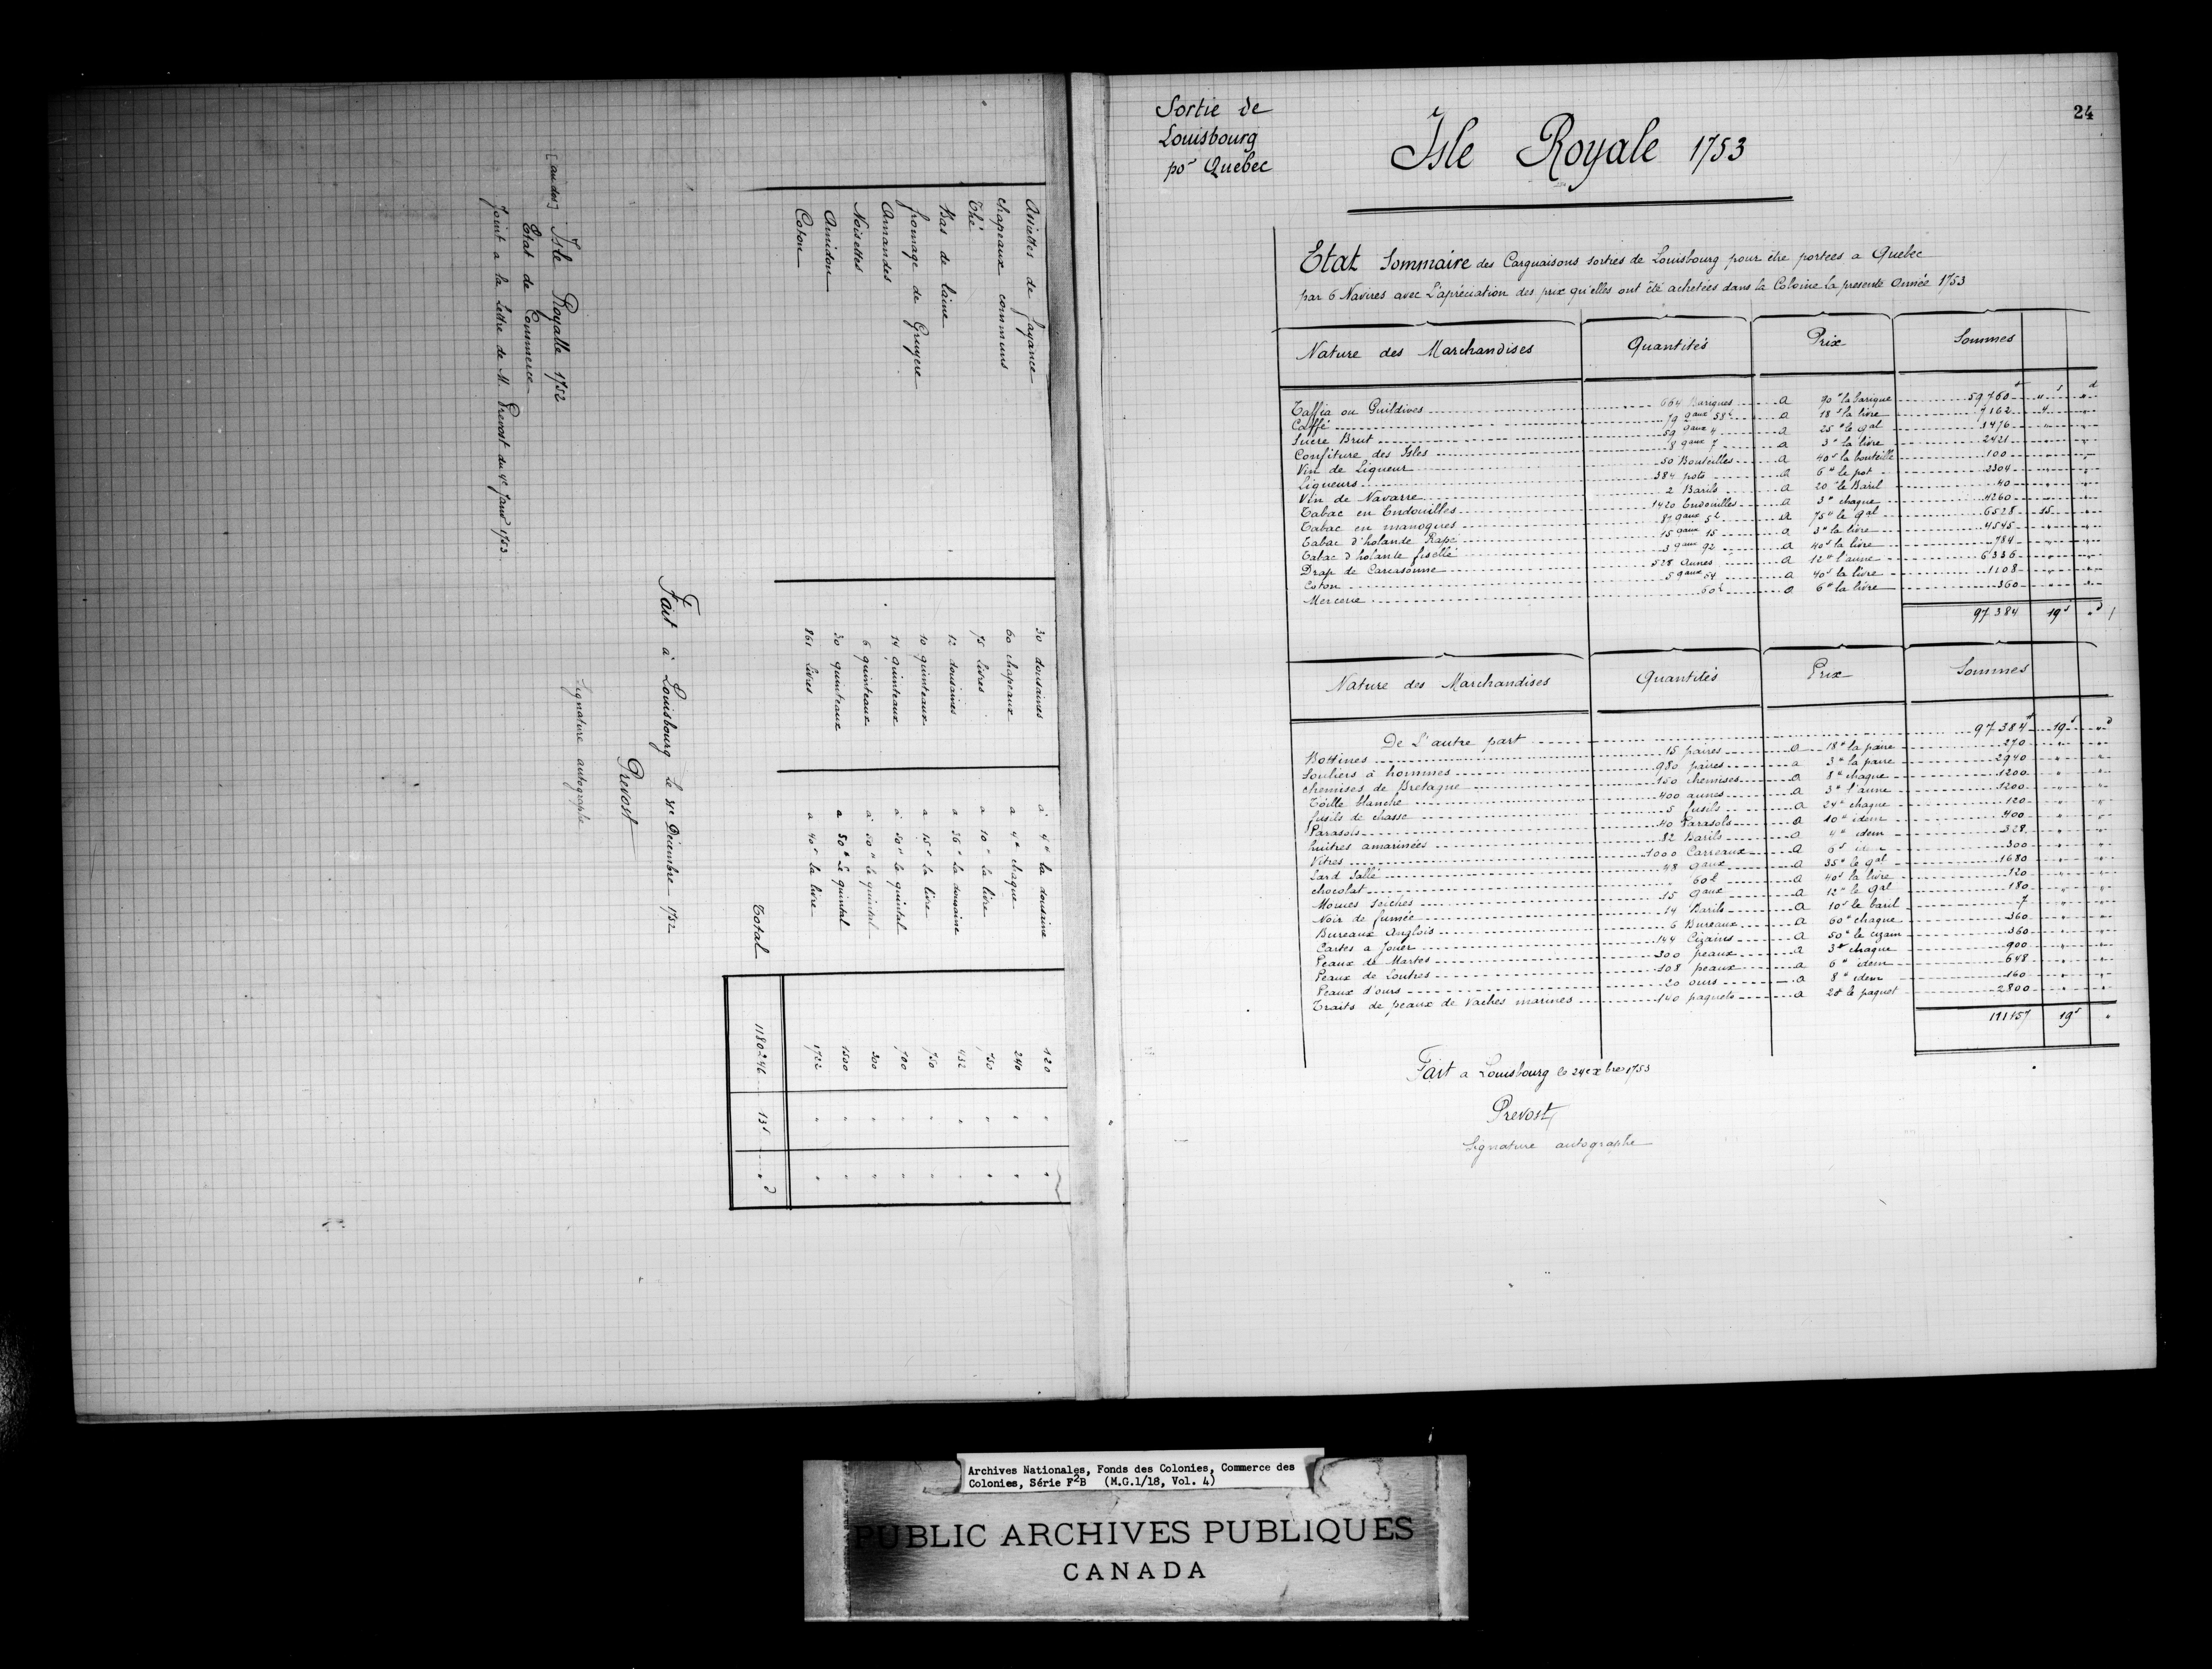 Assiettes de fayance 30 dousaines à 4# la dousaine 120 " "
chapeaux communs 60 chapeaux a 4# chaque 240 " "
Thé 75 livres a 10# la livre 750 " "
Bas de laine 12 dousaines a 36# la dousaine 432 " "
fromage de Gruyere 10 quinteaux a 15s la livre 750 " "
Amandes 14 quinteaux à 50# le quintal 700 " "
Noisettes 6 quinteaux à 50# le quintal 300 " "
Amidon 30 quinteaux a 50# Le quintal 1500 " "
Coton 861 livres a 40s la livre 1722 " "
Total 1180246 13s " d
Fait à Louisbourg le 31e Décembre 1752
Prevost
Signature autographe
[au dos] Isle Royalle 1752
Etat de Commerce
Joint a la lettre de M. Prevost du 4e Janvr 1753
24
Sortie de
Louisbourg
por Quebec
Isle Royale 1753
Etat Sommaire des Carguaisons sorties de Louisbourg pour être portées a Quebec
par 6 Navires avec L'apréciation des prix qu'elles ont été achetées dans la Colonie la presente année 1753
Nature des Marchandises Quantités Prix Sommes
Taffia ou Guildives 664 Bariques a 90# la barique 59760# "s "d
Caffé 79 qaux 58£ a 18s la livre 7162 4 "
Sucre Brut 59 qaux 4 a 25# le qal 1476 " "
Confiture des Isles 8 qaux 7 a 3# la livre 2421 " "
Vin de Liqueur 50 Bouteilles a 40s la bouteille 100 " "
Liqueurs 384 pots a 6# le pot 2304 " "
Vin de Navarre 2 Barils a 20# le Baril 40 " "
Tabac en Endouilles 1420 Endouilles a 3# chaque 4260 " "
Tabac en manoques 87 qaux 5£ a 75# le qal 6528 15 "
Tabac d'holande Rapé 15 qaux 15 a 3# la livre 4545 " "
Tabac d'holante fiscellé 3 qaux 92 a 40s la livre 784 " "
Drap de Carcasonne 528 aunes a 12# l'aune 6336 " "
Coton 5 qaux 54 a 40s la livre 1108 " "
Mercerie 60£ a 6# la livre 360 " "
97384 19s "d
Nature des Marchandises Quantités Prix Sommes
De L'autre part 97384# 19s "d
Bottines 15 paires a 18# la paire 270 " "
Souliers à hommes 980 paires a 3# la paire 2940 " "
chemises de Bretagne 150 chemises a 8# chaque 1200 " "
Toille blanche 400 aunes a 3# l'aune 1200 " "
fusils de chasse 5 fusils a 24# chaque 120 " "
Parasols 40 Parasols a 10# idem 400 " "
huitres amarinées 82 Barils a 4# idem 328 " "
Vitres 1000 Carreaux a 6s idem 300 " "
Lard Sallé 48 qaux a 35# le qal 1680 " "
chocolat 60£ a 40s la livre 120 " "
Morues seiches 15 qaux a 12# le qal 180 " "
Noir de fumée 14 Barils a 10s le baril 7 " "
Bureaux Anglois 6 Bureaux a 60# chaque 360 " "
Cartes a Jouer 144 Cizains a 50s le cizain 360 " "
Peaux de Martes 300 peaux a 3# chaque 900 " "
Peaux de Loutres 108 peaux a 6# idem 648 " "
Peaux d'ours 20 ours a 8# idem 160 " "
Traits de peaux de vaches marines 140 paquets a 20# le paquet 2800 " "
111157 19s "
Fait a Louisbourg le 24e xbre 1753
Prevost
Signature autographe
Archives Nationales, Fonds des Colonies, Commerce des
Colonies, Série F2B (M.G.1/18, Vol. 4)
PUBLIC ARCHIVES PUBLIQUES
CANADA